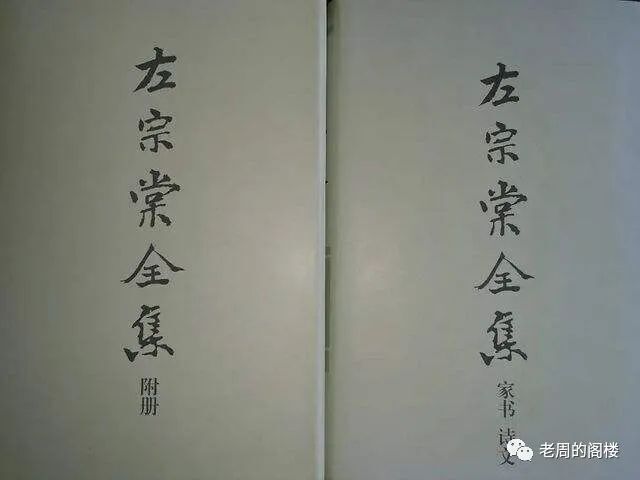 左宗棠全集
附册
左宗棠全集
家书 诗文
老周的阁楼